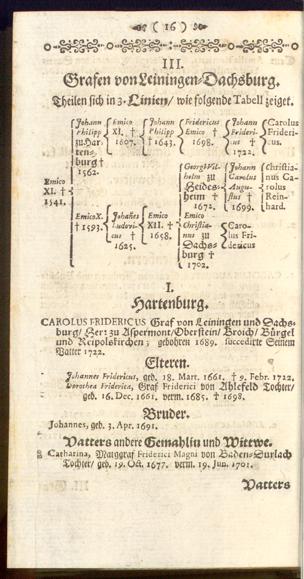 ( 16 )
III.
Grafen von Leiningen-Dachsburg.
Theilen sich in 3. Linien / wie folgende Tabell zeiget.
Johann Philipp zu Harten-burg † 1562.
Emico XI. † 1607.
Johann Philipp † 1643.
Fridericus Emico † 1698.
Johann Frideri-cus † 1722.
Carolus Frideri-cus.
Emico XI. † 1541.
Emico X. † 1593.
Johañes Ludovi-cus † 1625.
Emico XII. † 1658.
Georg Wil-helm zu Heides-heim † 1672.
Johann Carolus Augu-stus † 1699.
Christia-nus Ca-rolus Rein-hard.
Emico Christia-nus zu Dachs-burg † 1702.
Caro-lus Fri-dericus
I.
Hartenburg.
CAROLUS FRIDERICUS Graf von Leiningen und Dachs-
burg / Herr zu Aspermont / Oberstein / Broich / Bürgel
und Reipolskirchen; gebohren 1689. succedirte Seinem
Vatter 1722.
Elteren.
Johannes Fridericus, geb. 18. Mart. 1661. † 9. Febr. 1722.
Dorothea Friderica, Graf Friderici von Ahlefeld Tochter /
geb. 16. Dec. 1661. verm. 1685. † 1698.
Bruder.
Johannes, geb. 3. Apr. 1691.
Vatters andere Gemahlin und Wittwe.
Catharina, Marggraf Friderici Magni von Baden-Durlach
Tochter / geb. 19. Oct. 1677. verm. 19. Jun. 1701.
Vatters